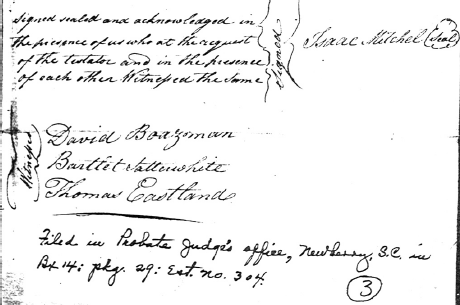 signed sealed and acknowledged in
the presence of us who at the request
of the testator and in the presence
of each other Witnessed the same
Signed
Isaac Mitchel (Seal)
Witnesses
David Boazman
Bartlet Satterwhite
Thomas Eastland
Filed in Probate Judge's office, Newberry, S.C. in
Bx 14: pkg. 29: Est. no. 304.
3